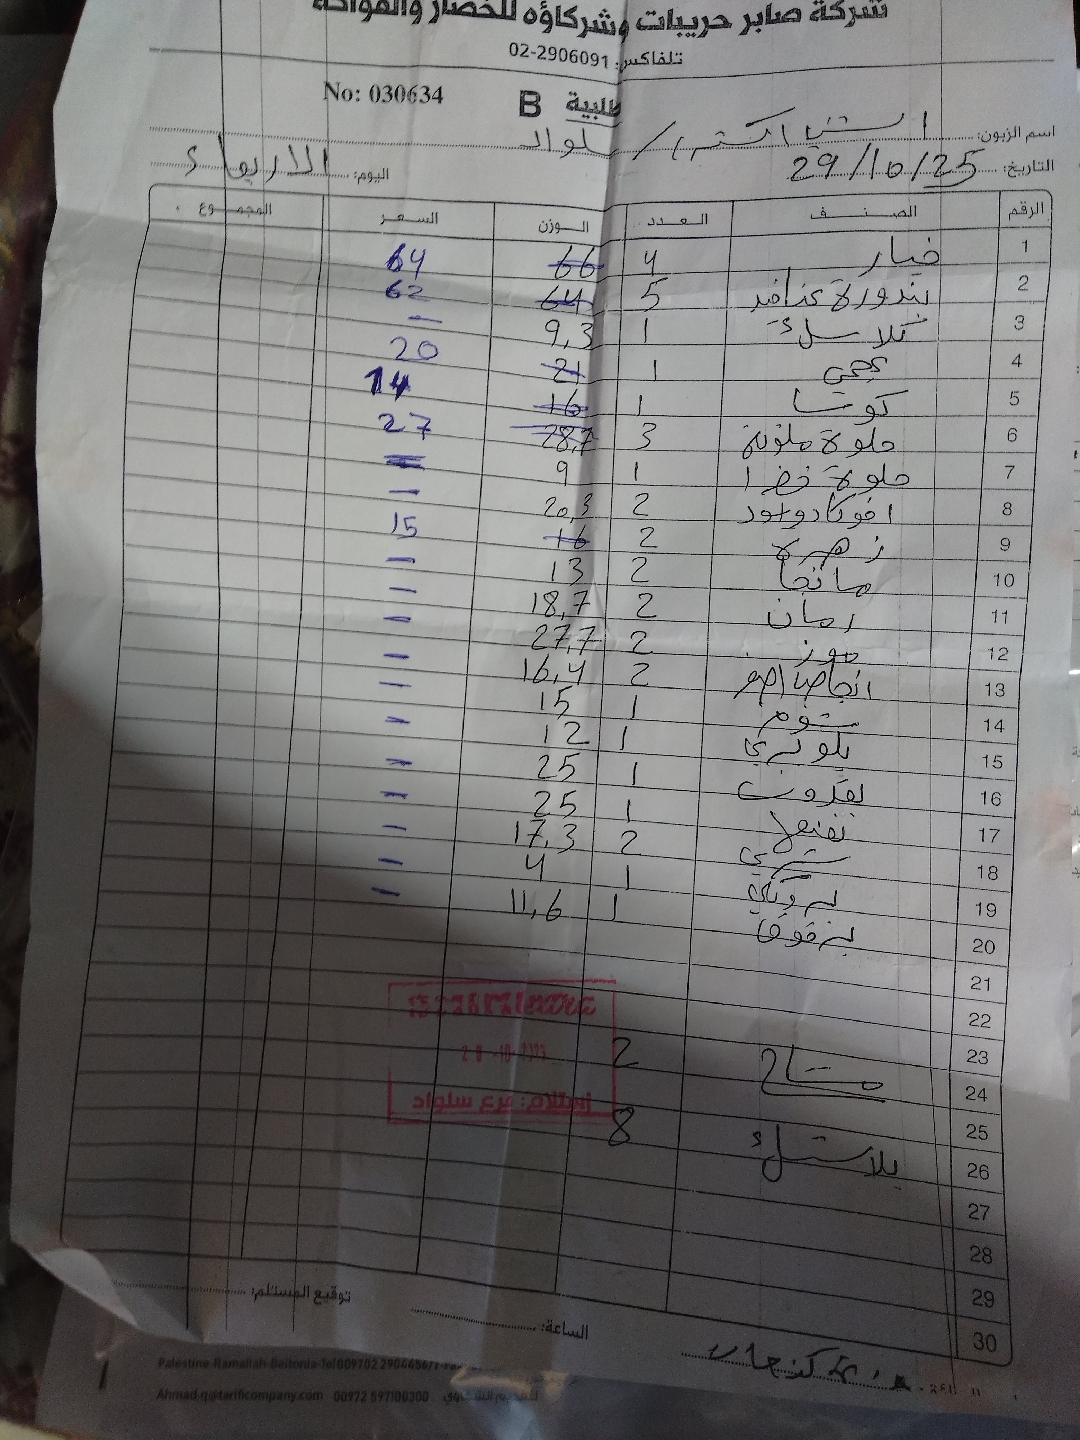 شركة صابر حريبات وشركاؤه للخضار والفواكه
تلفاكس: 02-2906091
طلبية B No: 030634
اسم الزبون: / سلواد
التاريخ: 29/10/25 اليوم: الاربعاء
الرقم الصنف العدد الوزن السعر المجموع
1 خيار 4 66 64
2 بندورة عناقيد 5 64 62
3 1 9,3 –
4 عجمي 1 21 20
5 كوسا 1 16 14
6 حلوة ملونة 3 28,7 27
7 حلوة خضرا 1 9 –
8 افوكادو 2 20,3 –
9 زهرة 2 16 15
10 مانجا 2 13 –
11 رمان 2 18,7 –
12 موز 2 27,7 –
13 انجاص اصفر 2 16,4 –
14 ثوم 1 15 –
15 بلوبري 1 12 –
16 1 25 –
17 1 25 –
18 شري 2 17,3 –
19 1 4 –
20 برقوق 1 11,6 –
21
22
23
24 مشتاح 2
25
26 بلاستك 8
27
28
29
30
استلام: فرع سلواد
توقيع المستلم:
الساعة:
Palestine-Ramallah-Beitonia-Tel
Ahmad.q@tarificompany.com 00972 597100300